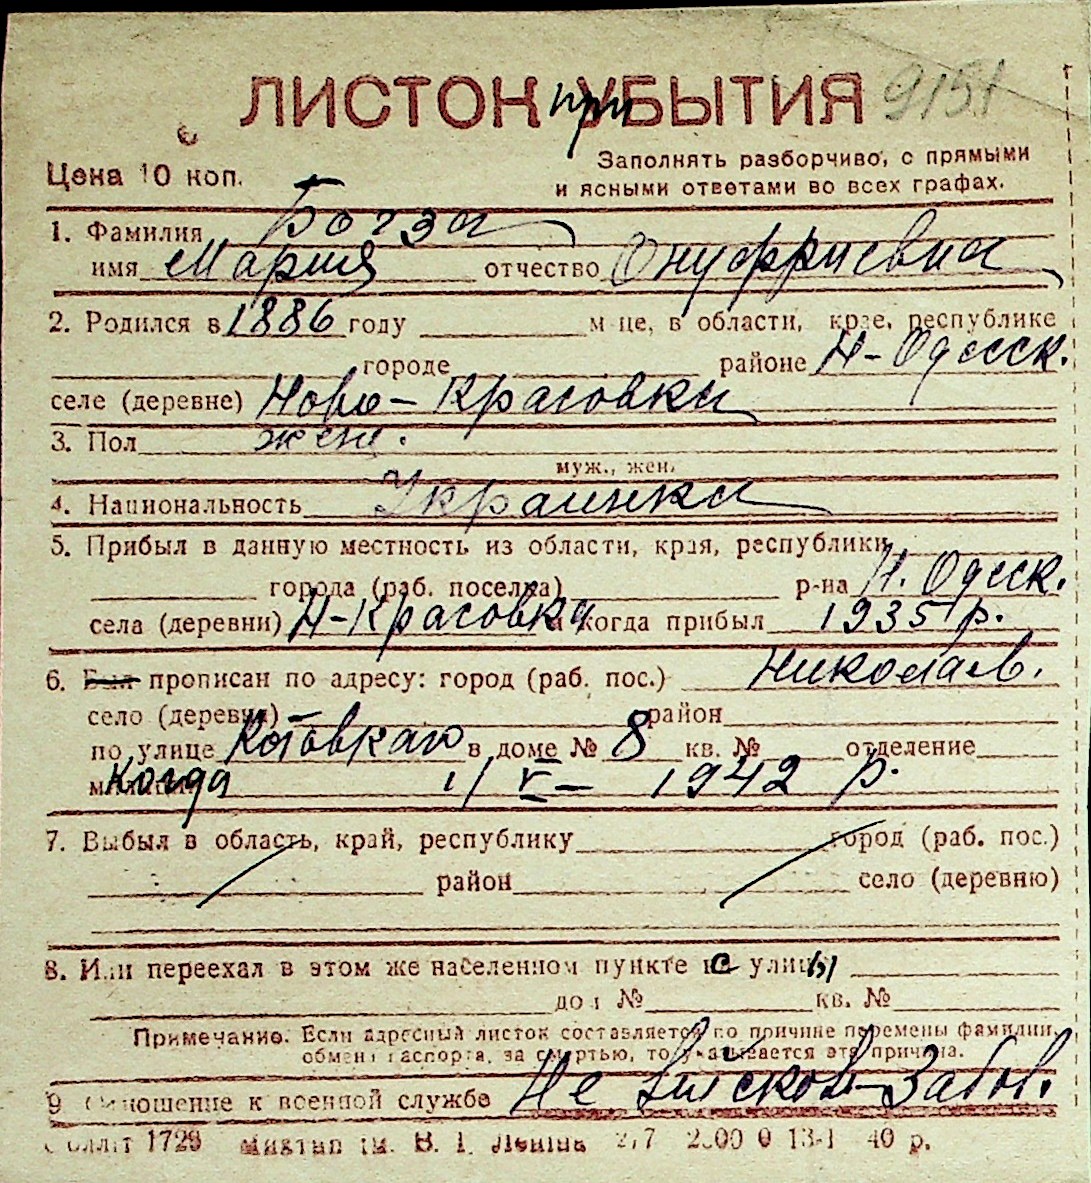 ЛИСТОК при УБЫТИЯ 9151
Цена 10 коп.
Заполнять разборчиво, с прямыми
и ясными ответами во всех графах.
1. Фамилия Богза
имя Мария отчество Онуфриевна
2. Родился в 1886 году м-це, в области, крае, республике
городе районе Н-Одесск.
селе (деревне) Ново-Красовка
3. Пол женщ.
муж., жен.
4. Национальность Украинка
5. Прибыл в данную местность из области, края, республики
города (раб. поселка) р-на Н. Одесск.
села (деревни) Н-Красовка и когда прибыл 1935 р.
6. Был прописан по адресу: город (раб. пос.) Николаев.
село (деревня) — район
по улице в доме № 8 кв. № отделение
когда 1/V — 1942 р.
7. Выбыл в область, край, республику город (раб. пос.)
район село (деревню)
8. Или переехал в этом же населенном пункте с улицы
дом № кв. №
Примечание. Если адресный листок составляется по причине перемены фамилии,
обмена паспорта, за смертью, то указывается эта причина.
9 Отношение к военной службе Не Військов-Забов.
1729 В. І. Леніна 217 40 р.